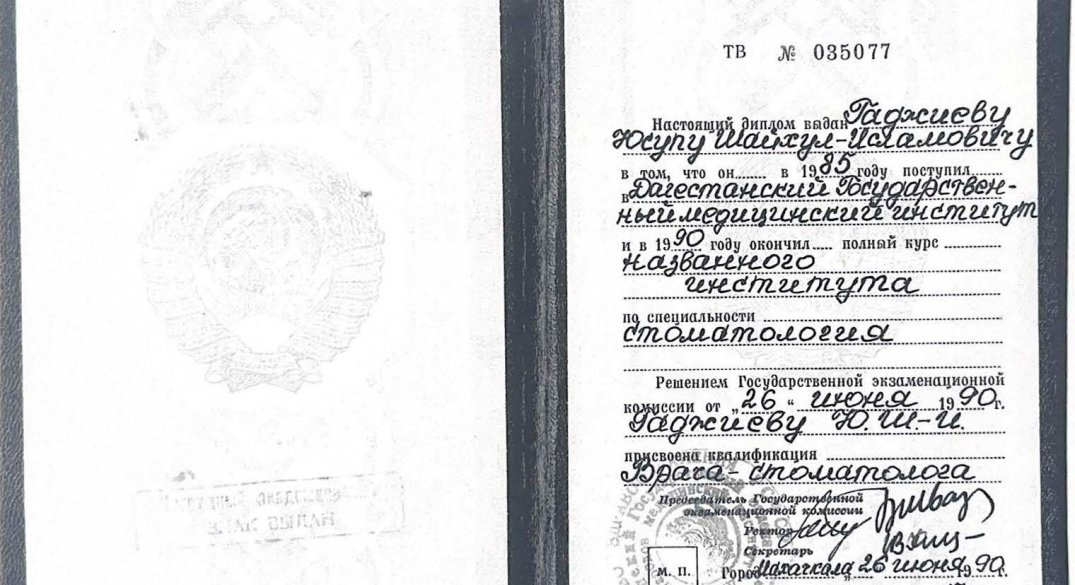 ТВ № 035077
Настоящий диплом выдан Гаджиеву
Юсупу Шайхул-Исламовичу
в том, что он в 1985 году поступил
в Дагестанский Государствен-
ный медицинский институт
и в 1990 году окончил полный курс
названного
института
по специальности
стоматология
Решением Государственной экзаменационной
комиссии от „26“ июня 1990г.
Гаджиеву Ю.Ш-И.
присвоена квалификация
Врача-стоматолога
Председатель Государственной
экзаменационной комиссии
Ректор
Секретарь
М. П.
Город Махачкала „26 июня 1990.